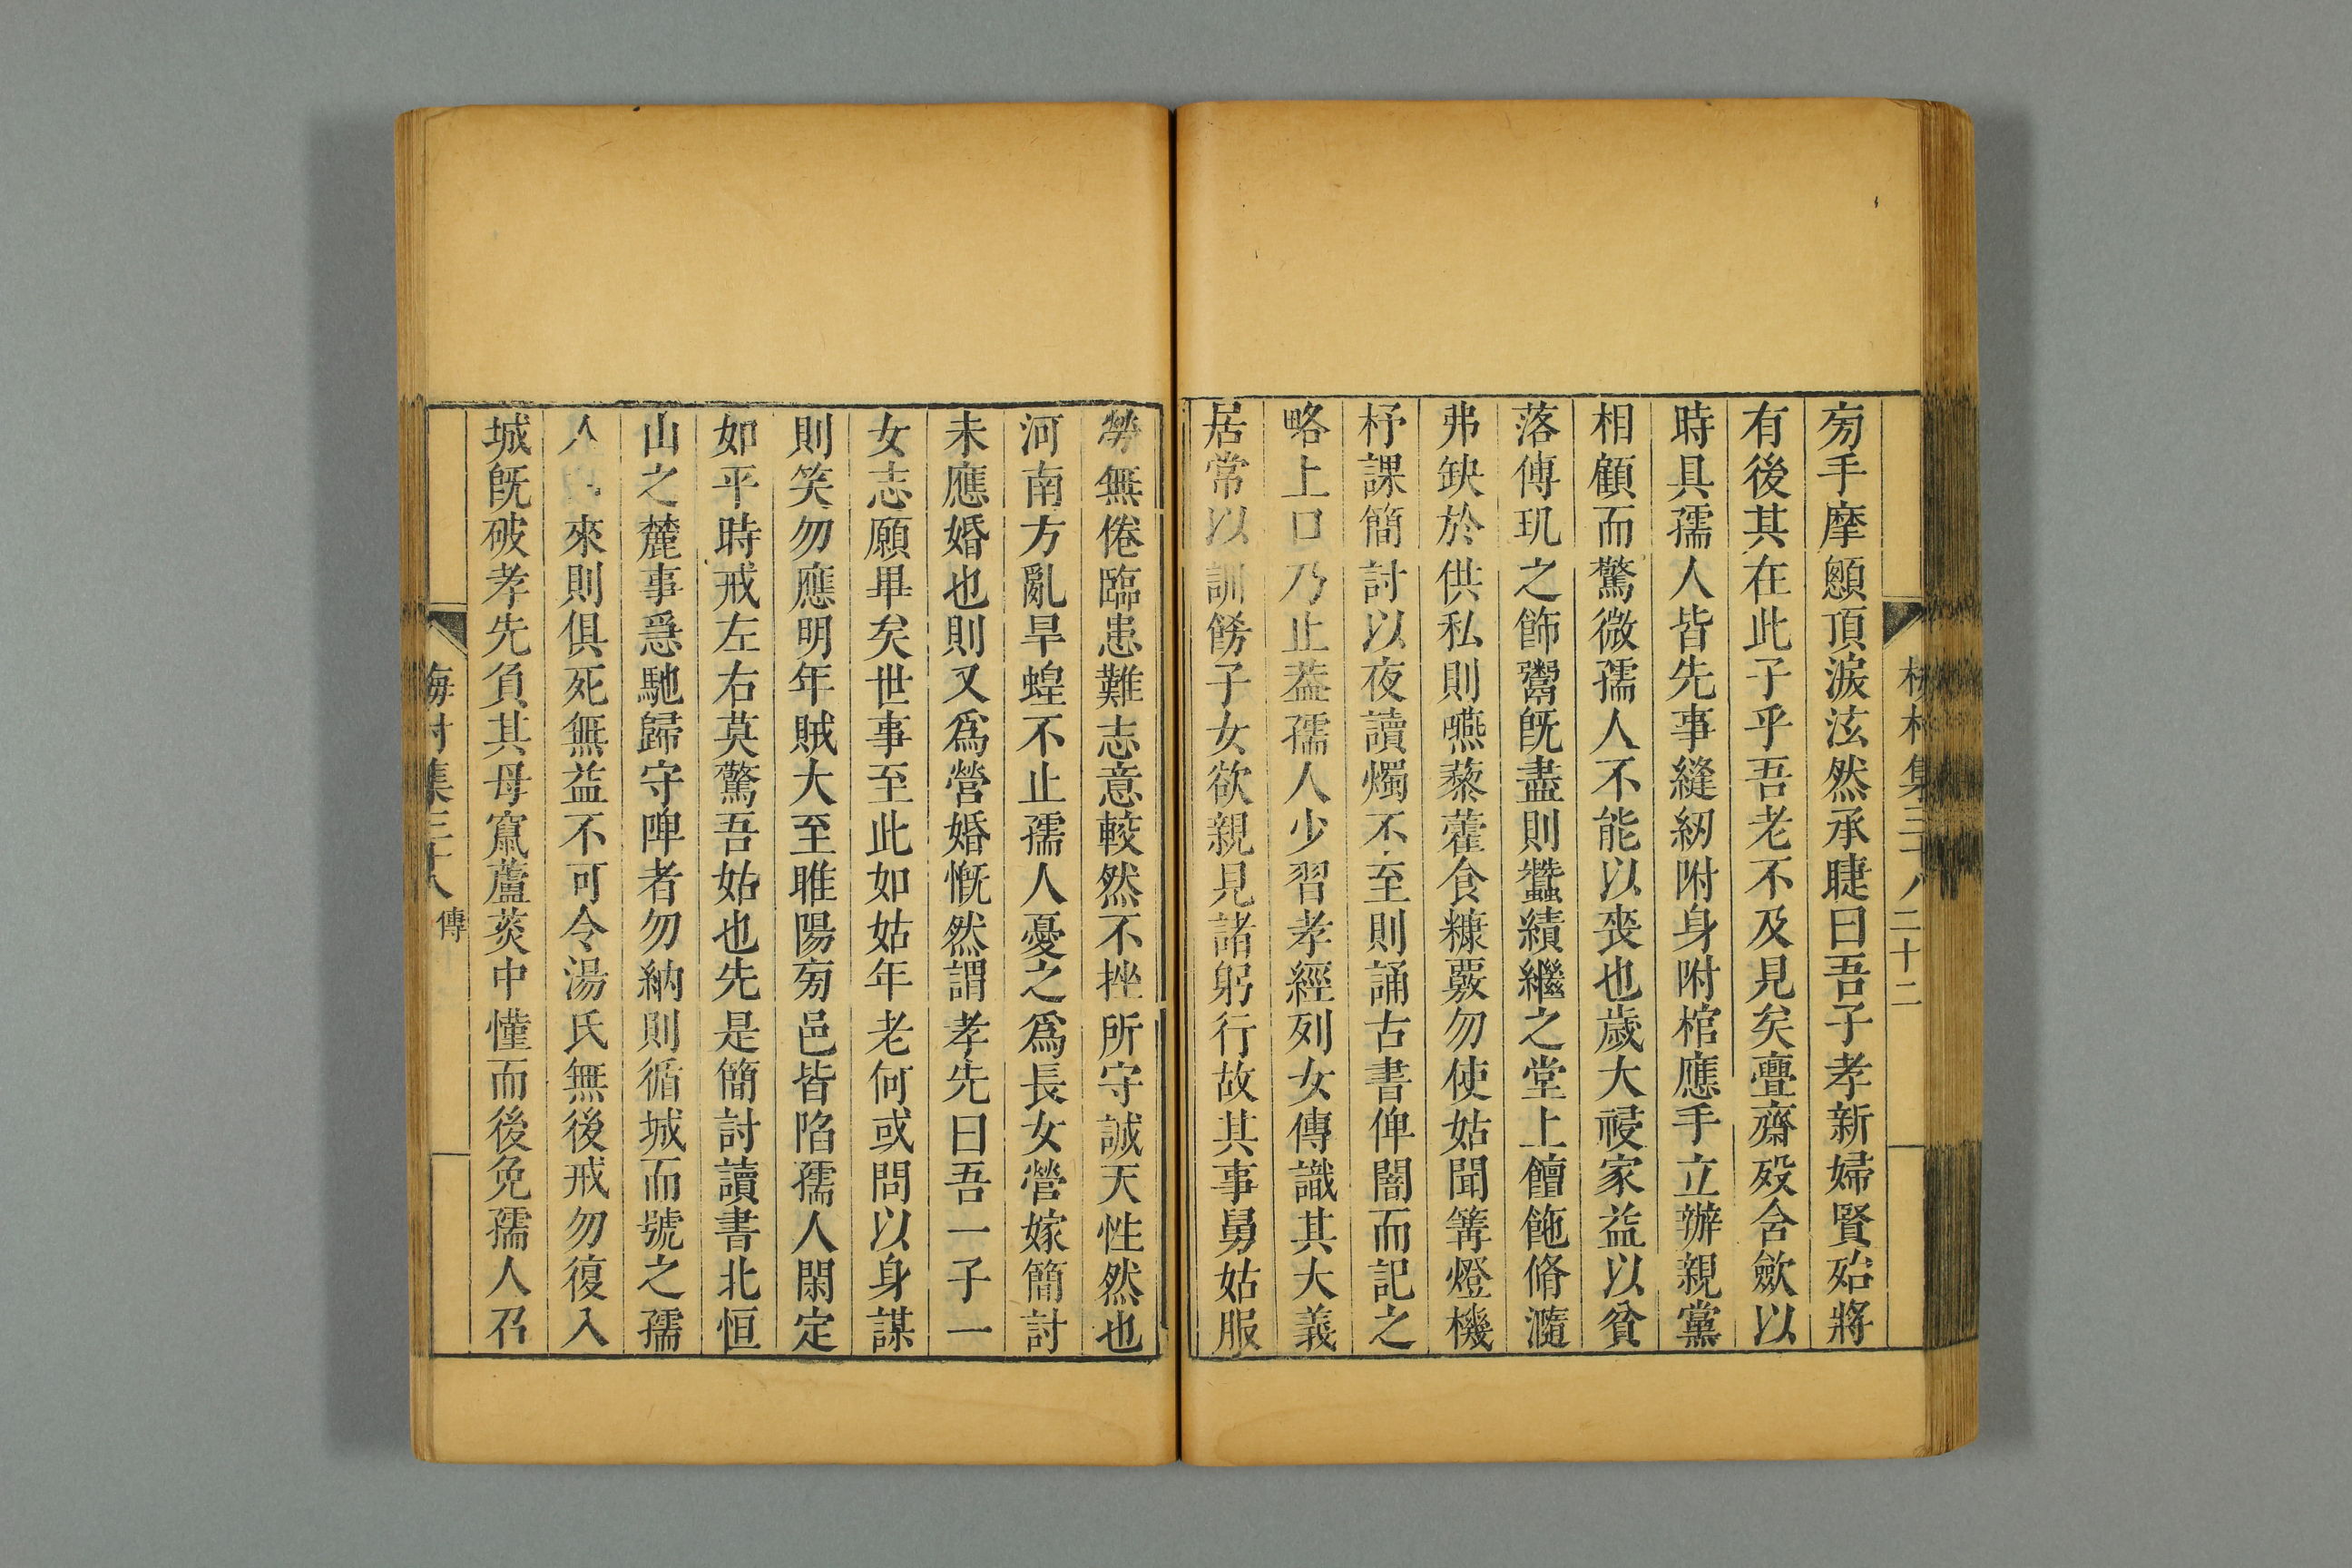 梅村集三十八 二十二
旁手摩顖頂淚泫然承睫曰吾子孝新婦賢殆將
有後其在此子乎吾老不及見矣亹齋歿含歛以
時具孺人皆先事縫紉附身附棺應手立辦親黨
相顧而驚微孺人不能以喪也歲大祲家益以貧
落傅玑之飾鬻旣盡則蠶績繼之堂上饘飽脩瀡
弗缺於供私則嚥藜藿食糠覈勿使姑聞篝燈機
杼課簡討以夜讀燭不至則誦古書俾闇而記之
略上口乃止蓋孺人少習孝經列女傳識其大義
居常以訓餝子女欲親見諸躬行故其事舅姑服
勞無倦臨患難志意較然不挫所守誠天性然也
河南方亂旱蝗不止孺人憂之爲長女營嫁簡討
未應婚也則又爲營婚慨然謂孝先曰吾一子一
女志願畢矣世事至此如姑年老何或問以身謀
則笑勿應明年賊大至睢陽旁邑皆陷孺人閑定
如平時戒左右莫驚吾姑也先是簡討讀書北恒
山之麓事急馳歸守陴者勿納則循城而號之孺
人 來則俱死無益不可令湯氏無後戒勿復入
城旣破孝先負其母竄蘆荻中僅而後免孺人召
梅村集三十八 傳